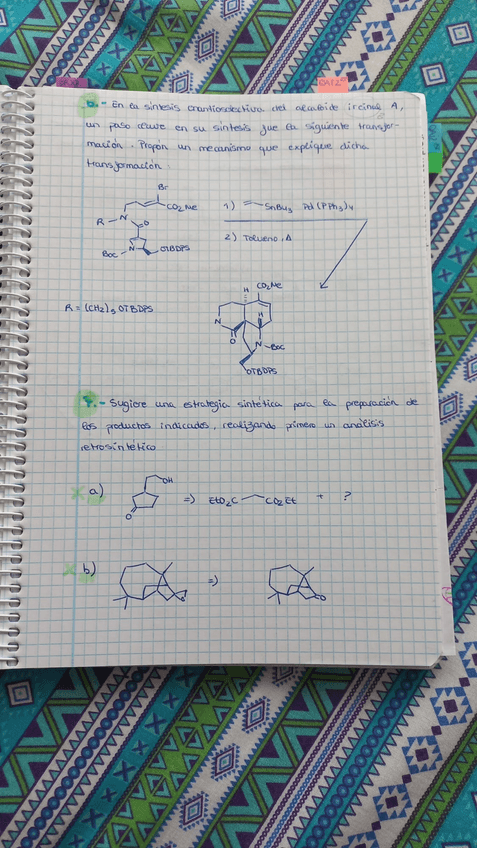 6.- En la síntesis enantioselectiva del alcaloide ircinal A,
un paso clave en su síntesis fue la siguiente transfor-
mación. Propón un mecanismo que explique dicha
transformación.
Br
CO2Me
R-N
O
Boc-N
OTBDPS
1) SnBu3 Pd(PPh3)4
2) Tolueno, Δ
R = (CH2)5 OTBDPS
CO2Me
H
H
N
O
N-Boc
OTBDPS
7.- Sugiere una estrategia sintética para la preparación de
los productos indicados, realizando primero un análisis
retrosintético
a)
OH
O
=) EtO2C CO2Et + ?
b)
O
=)
O